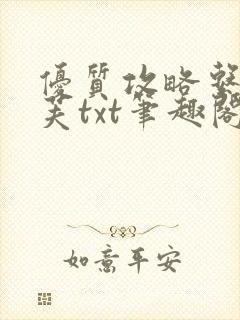 優質攻略整
笑txt筆趣閣
如意平安